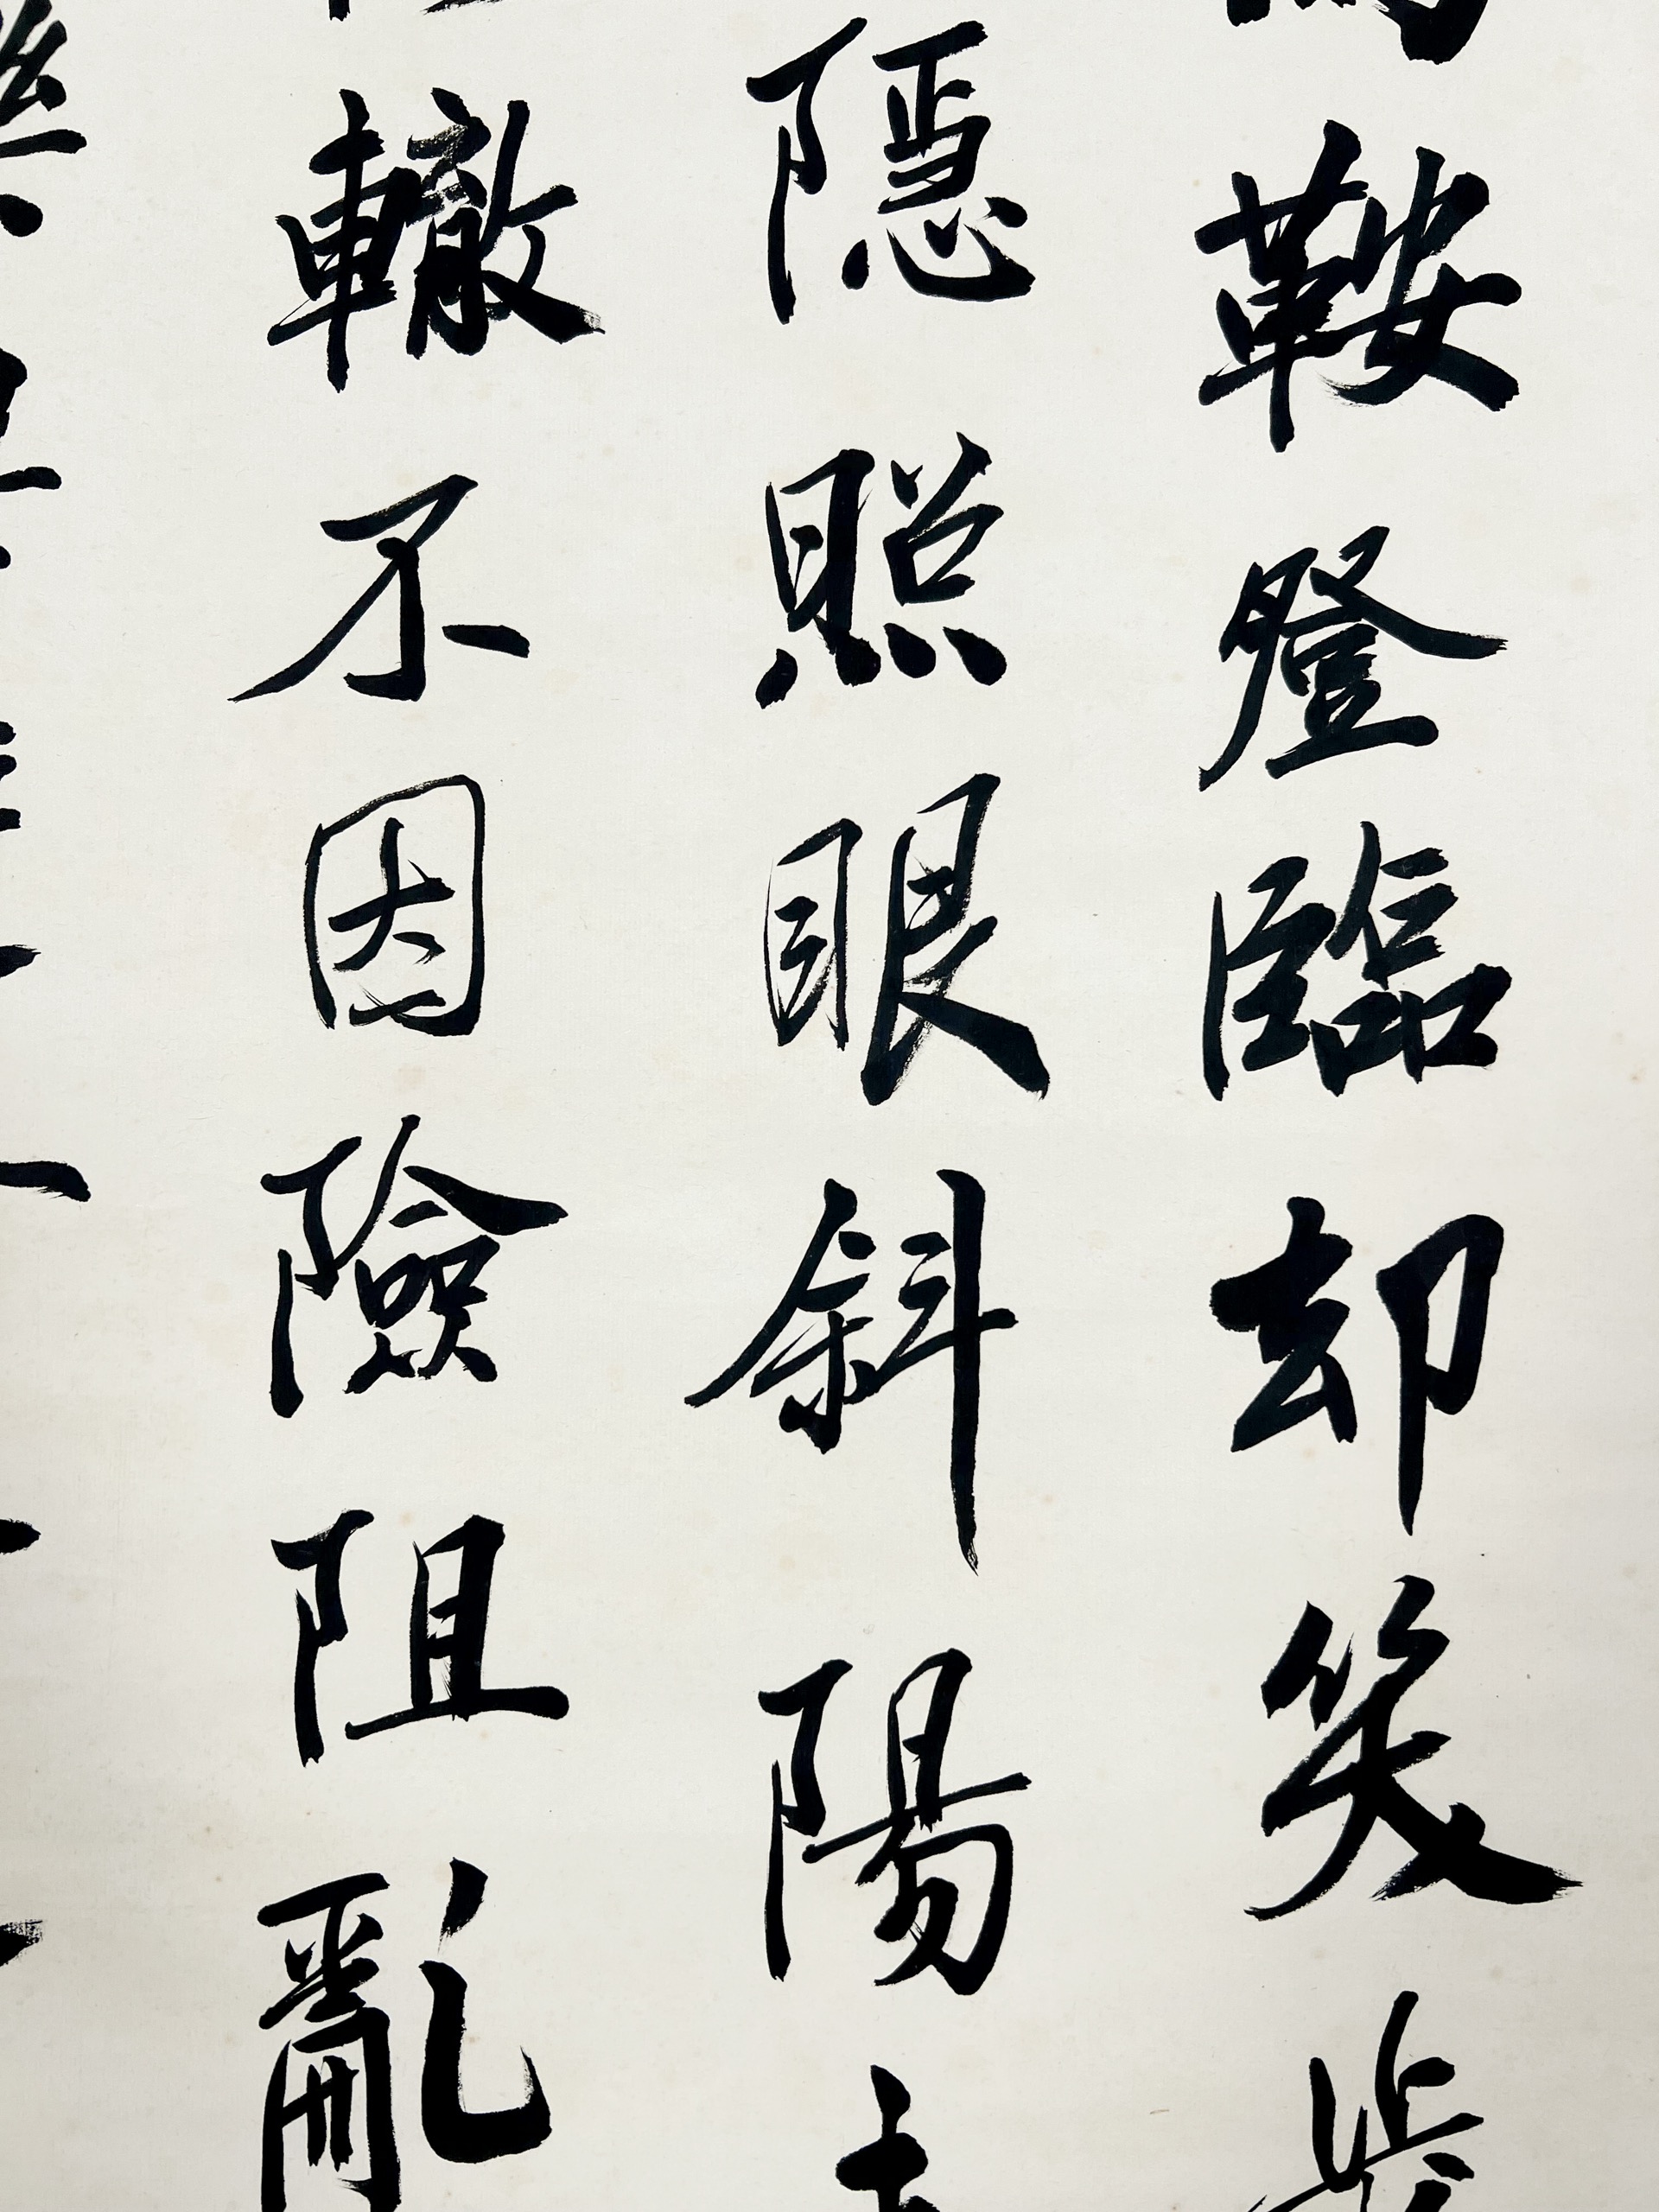 鞍登臨却笑
隱照眼斜陽
轍不因險阻亂